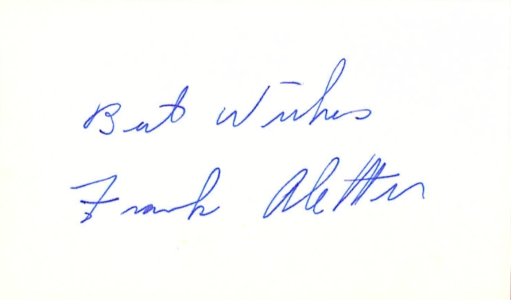 Best Wishes
Frank Aletter